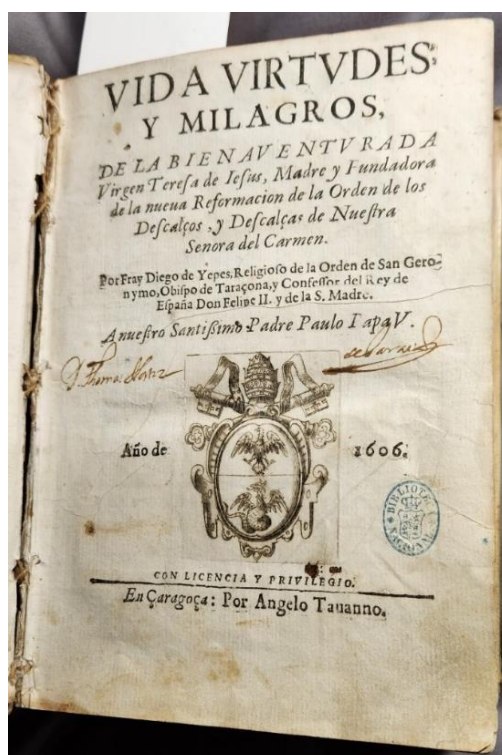 VIDA VIRTVDES,
Y MILAGROS,
DE LA BIENAVENTVRADA
Virgen Teresa de Iesus, Madre y Fundadora
de la nueua Reformacion de la Orden de los
Descalços, y Descalças de Nuestra
Senora del Carmen.
Por Fray Diego de Yepes, Religioso de la Orden de San Gero-
nymo, Obispo de Taraçona, y Confessor del Rey de
España Don Felipe II. y de la S. Madre.
A nuestro Santissimo Padre Paulo Papa V.
Año de 1606.
BIBLIOTECA NACIONAL
CON LICENCIA Y PRIVILEGIO.
En Çaragoça: Por Angelo Tauanno.